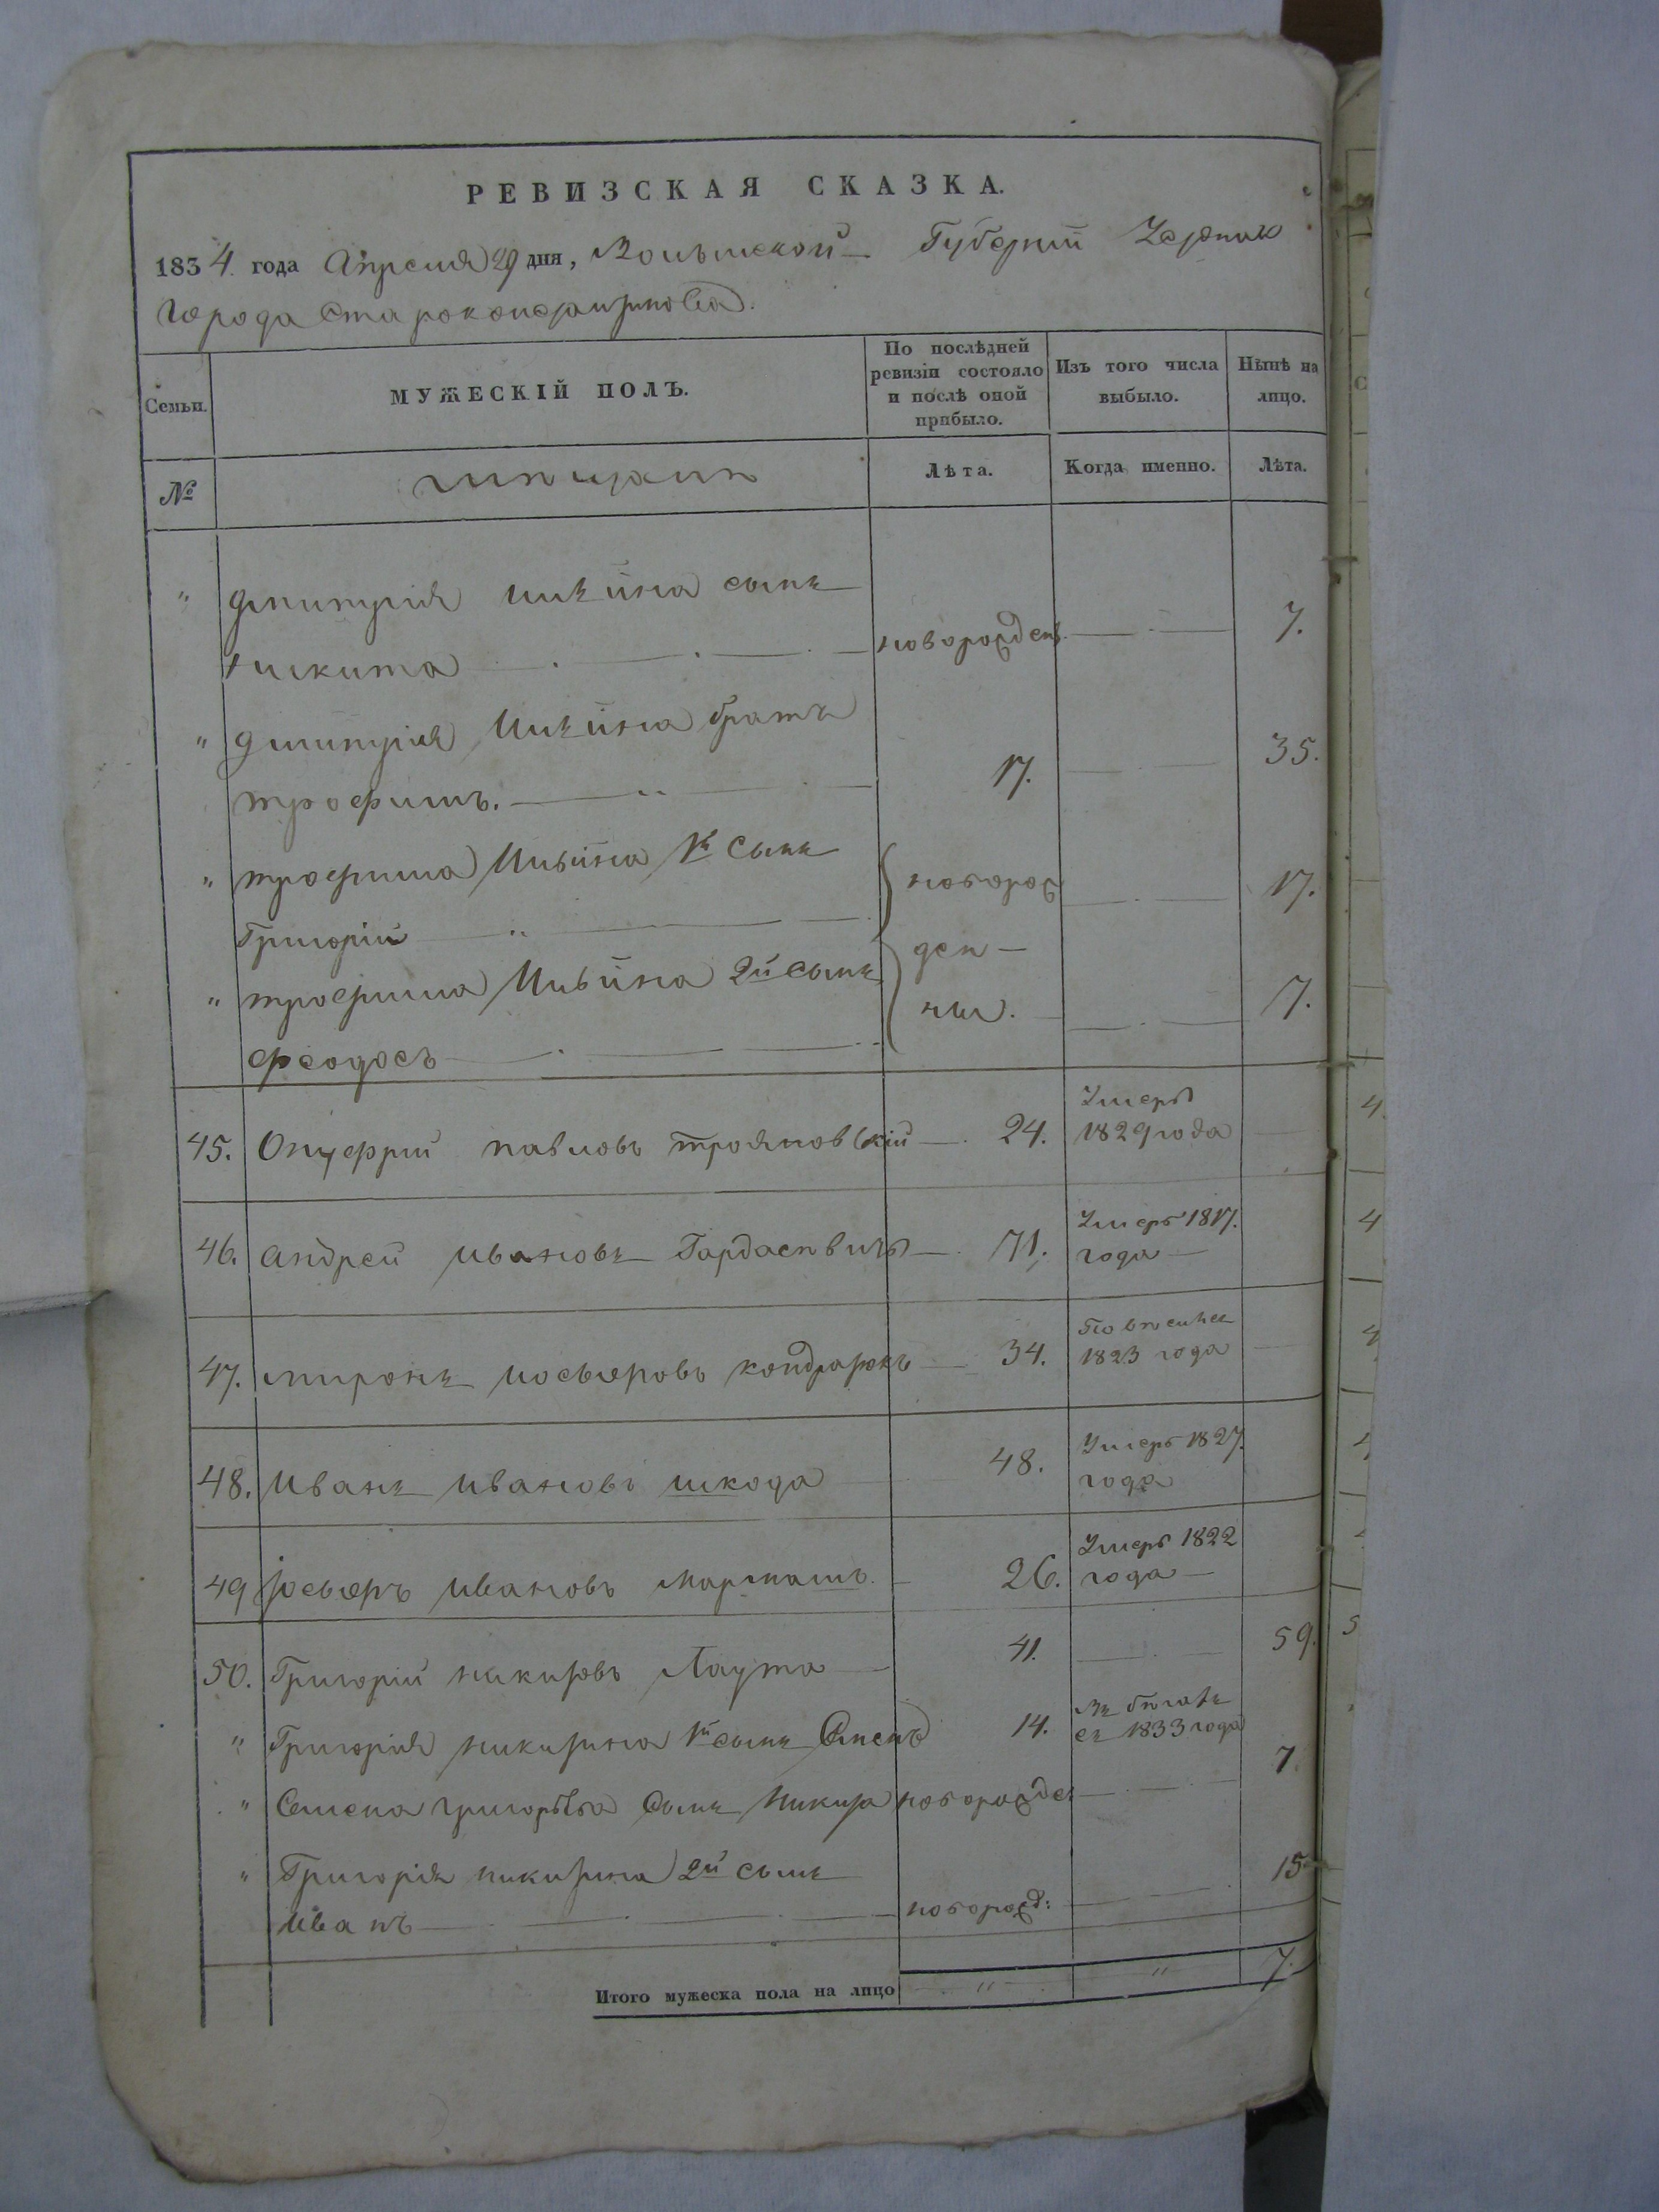 РЕВИЗСКАЯ СКАЗКА.
1834. года Апреля 29 дня, Волынской Губернии
города Староконстантинова.
Семьи.
МУЖЕСКІЙ ПОЛЪ.
По послѣдней
ревизіи состояло
и послѣ оной
прибыло.
Изъ того числа
выбыло.
Нынѣ на
лицо.
№
Лѣта.
Когда именно.
Лѣта.
" Дмитрія сынъ
Никита новорожден. 7.
" Дмитрія братъ
Трофимъ. 17. 35.
" Трофима Ильина 1й сынъ
Григорій новорож 17.
ден
" Трофима Ильина 2й сынъ
ные. 7.
Феодосъ
45. Онуфрій Павловъ Трояновскій 24. Умеръ
1829 года
46. Андрей Ивановъ 71. Умеръ 1817.
года
47. Миронъ Іосифовъ 34.
1823 года
48. Иванъ Ивановъ Шкода 48. Умеръ 1827.
года
49 Іосифъ Ивановъ 26. Умеръ 1822
года
50. Григорій Лаута 41. 59.
" Григорія 1й сынъ Семенъ 14. Въ бѣгахъ
съ 1833 года
" Семена Григорьева сынъ новорожден 7.
" Григорія 2й сынъ
Иванъ новорожд: 15
Итого мужеска пола на лицо " " 7.